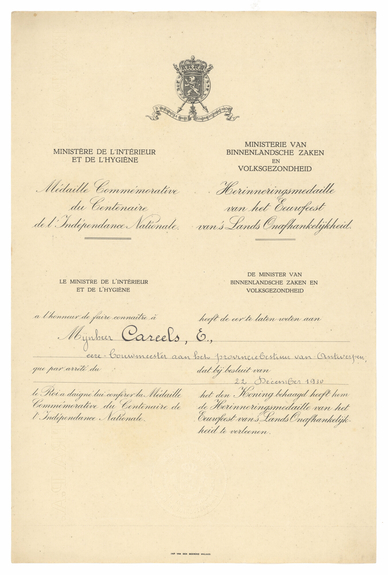 MINISTÈRE DE L'INTÉRIEUR
ET DE L'HYGIÈNE
Médaille Commémorative
du Centenaire
de l'Indépendance Nationale.
LE MINISTRE DE L'INTÉRIEUR
ET DE L'HYGIÈNE
MINISTERIE VAN
BINNENLANDSCHE ZAKEN
EN
VOLKSGEZONDHEID
Herinneringsmedaille
van het Eeuwfeest
van 's Lands Onafhankelijkheid.
DE MINISTER VAN
BINNENLANDSCHE ZAKEN EN
VOLKSGEZONDHEID
a l'honneur de faire connaître à heeft de eer te laten weten aan
Mijnheer Careels, E.,
eere-bouwmeester aan het provinciebestuur van Antwerpen,
que par arrêté du dat bij besluit van
22 December 1930
le Roi a daigné lui conférer la Médaille
Commémorative du Centenaire de
l'Indépendance Nationale.
het den Koning behaagd heeft hem
de Herinneringsmedaille van het
Eeuwfeest van 's Lands Onafhankelijk-
heid te verleenen.